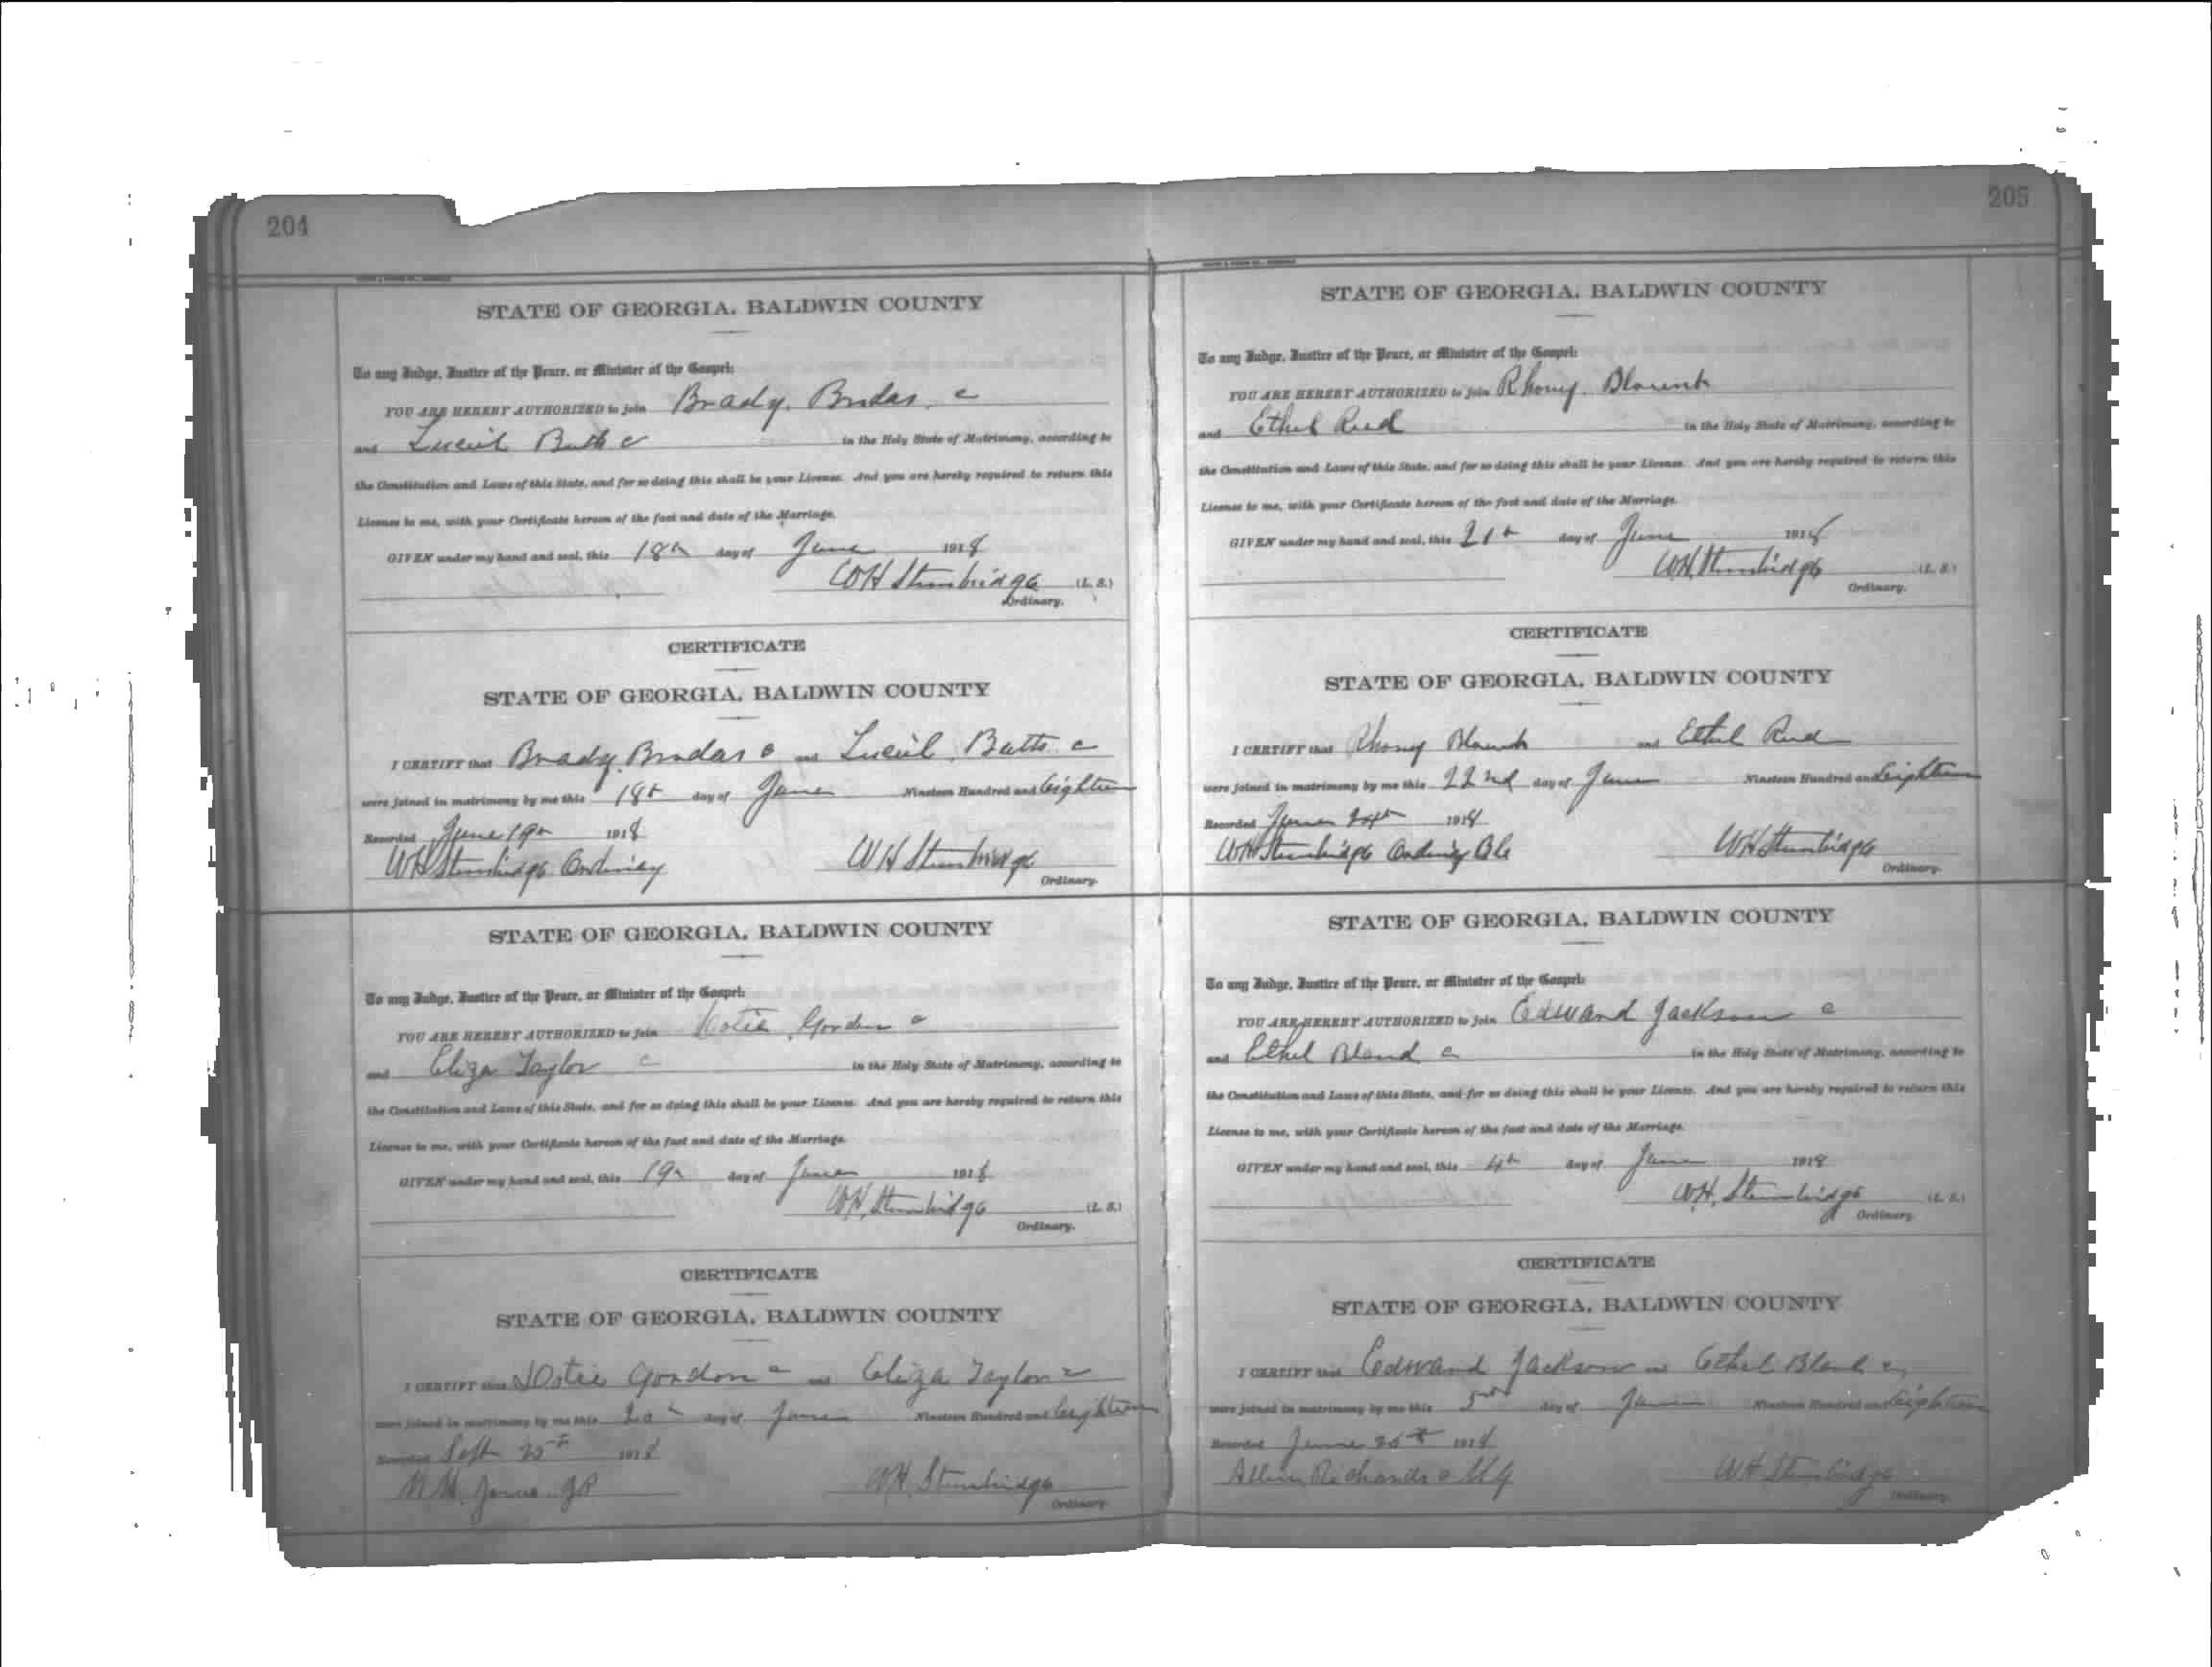 204
STATE OF GEORGIA. BALDWIN COUNTY
To any Judge, Justice of the Peace, or Minister of the Gospel:
YOU ARE HEREBY AUTHORIZED to join Brady c
and Butts c in the Holy State of Matrimony, according to
the Constitution and Laws of this State, and for so doing this shall be your License. And you are hereby required to return this
License to me, with your Certificate hereon of the fact and date of the Marriage.
GIVEN under my hand and seal, this 18th day of June 1918
WH Stembridge (L. S.)
Ordinary.
CERTIFICATE
STATE OF GEORGIA. BALDWIN COUNTY
I CERTIFY that Brady c and Butts c
were joined in matrimony by me this 18th day of June Nineteen Hundred and Eighteen
Recorded June 19th 1918
WH Stembridge Ordinary WH Stembridge
Ordinary.
STATE OF GEORGIA. BALDWIN COUNTY
To any Judge, Justice of the Peace, or Minister of the Gospel:
YOU ARE HEREBY AUTHORIZED to join Gordon c
and Eliza Taylor c in the Holy State of Matrimony, according to
the Constitution and Laws of this State, and for so doing this shall be your License. And you are hereby required to return this
License to me, with your Certificate hereon of the fact and date of the Marriage.
GIVEN under my hand and seal, this 19th day of June 1918
W.H. Stembridge (L. S.)
Ordinary.
CERTIFICATE
STATE OF GEORGIA. BALDWIN COUNTY
I CERTIFY that Gordon c and Eliza Taylor c
were joined in matrimony by me this 20th day of June Nineteen Hundred and Eighteen
Recorded Sept 25th 1918
W.H. Stembridge
Ordinary.
205
STATE OF GEORGIA. BALDWIN COUNTY
To any Judge, Justice of the Peace, or Minister of the Gospel:
YOU ARE HEREBY AUTHORIZED to join Rhony Blount
and Ethel Reid in the Holy State of Matrimony, according to
the Constitution and Laws of this State, and for so doing this shall be your License. And you are hereby required to return this
License to me, with your Certificate hereon of the fact and date of the Marriage.
GIVEN under my hand and seal, this 21th day of June 1918
WH Stembridge (L. S.)
Ordinary.
CERTIFICATE
STATE OF GEORGIA. BALDWIN COUNTY
I CERTIFY that Rhony Blount and Ethel Reid
were joined in matrimony by me this 22nd day of June Nineteen Hundred and Eighteen
Recorded June 24th 1918
WH Stembridge Ordinary WH Stembridge
Ordinary.
STATE OF GEORGIA. BALDWIN COUNTY
To any Judge, Justice of the Peace, or Minister of the Gospel:
YOU ARE HEREBY AUTHORIZED to join Edward Jackson c
and Ethel Bland c in the Holy State of Matrimony, according to
the Constitution and Laws of this State, and for so doing this shall be your License. And you are hereby required to return this
License to me, with your Certificate hereon of the fact and date of the Marriage.
GIVEN under my hand and seal, this 4th day of June 1918
W.H. Stembridge (L. S.)
Ordinary.
CERTIFICATE
STATE OF GEORGIA. BALDWIN COUNTY
I CERTIFY that Edward Jackson and Ethel Bland c
were joined in matrimony by me this day of June Nineteen Hundred and Eighteen
Recorded June 1918
Richards MG WH Stembridge
Ordinary.